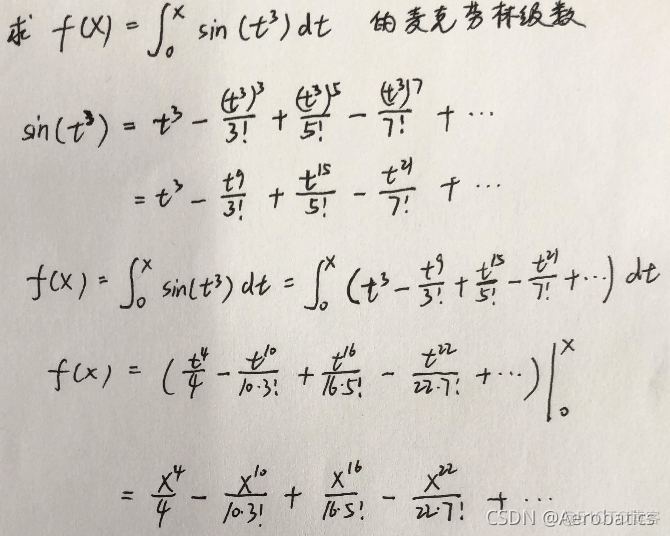 求 f(x) = ∫₀ˣ sin(t³)dt 的麦克劳林级数
sin(t³) = t³ - (t³)³/3! + (t³)⁵/5! - (t³)⁷/7! + ⋯
= t³ - t⁹/3! + t¹⁵/5! - t²¹/7! + ⋯
f(x) = ∫₀ˣ sin(t³)dt = ∫₀ˣ (t³ - t⁹/3! + t¹⁵/5! - t²¹/7! + ⋯) dt
f(x) = (t⁴/4 - t¹⁰/10·3! + t¹⁶/16·5! - t²²/22·7! + ⋯)|₀ˣ
= x⁴/4 - x¹⁰/10·3! + x¹⁶/16·5! - x²²/22·7! + ⋯
CSDN @Aerobatics